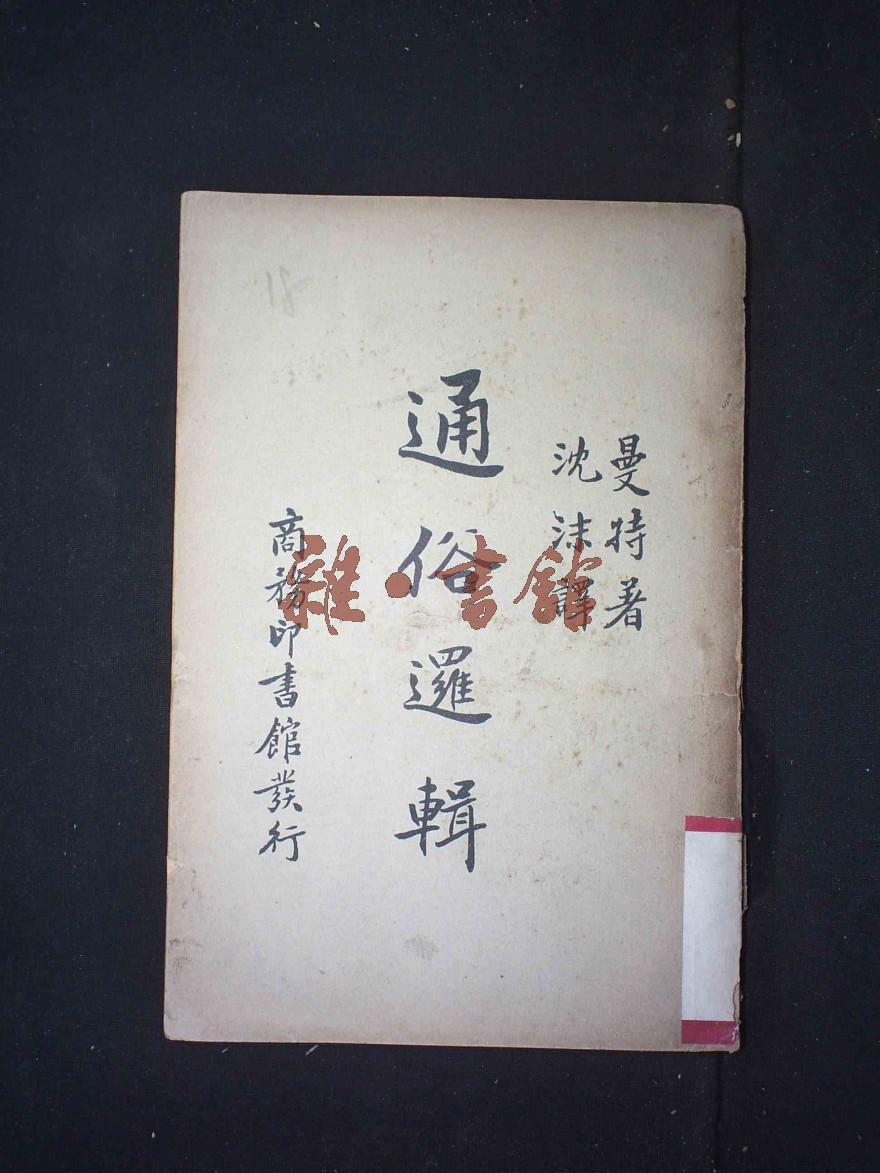 曼特著
沈沫譯
通俗邏輯
商務印書館發行
雜·書館
18